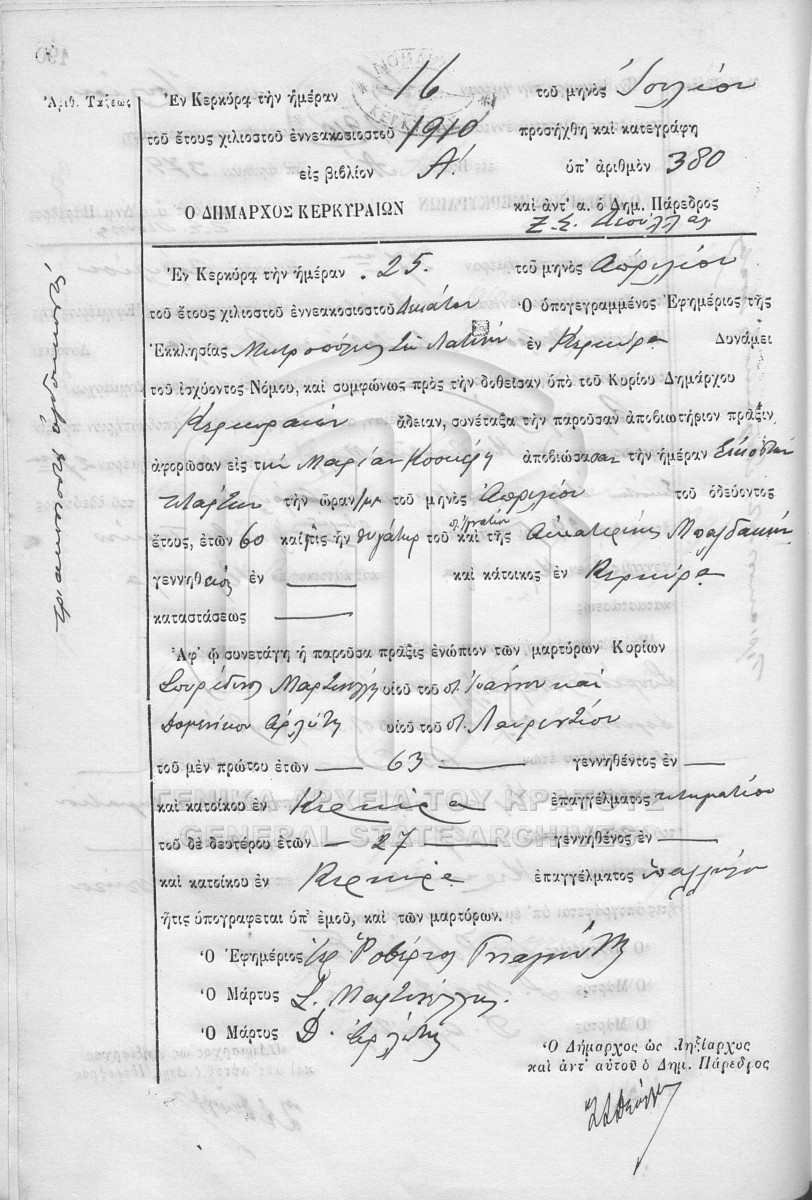 190
Ἀριθ. Τάξεως
Ἐν Κερκύρᾳ τὴν ἡμέραν 16 τοῦ μηνὸς Ἰουλίου
τοῦ ἔτους χιλιοστοῦ ἐννεακοσιοστοῦ 1910 προσήχθη καὶ κατεγράφη
εἰς βιβλίον Α΄ ὑπ' ἀριθμὸν 380
Ο ΔΗΜΑΡΧΟΣ ΚΕΡΚΥΡΑΙΩΝ καὶ ἀντ' α. ὁ Δημ. Πάρεδρος
τριακοσιοστὸς ὀγδοηκοστὸς
Ἐν Κερκύρᾳ τὴν ἡμέραν 25. τοῦ μηνὸς Ἀπριλίου
τοῦ ἔτους χιλιοστοῦ ἐννεακοσιοστοῦ δεκάτου Ὁ ὑπογεγραμμένος Ἐφημέριος τῆς
Ἐκκλησίας Μητροπόλεως τῶν Λατίνων ἐν Κερκύρᾳ Δυνάμει
τοῦ ἰσχύοντος Νόμου, καὶ συμφώνως πρὸς τὴν δοθεῖσαν ὑπὸ τοῦ Κυρίου Δημάρχου
Κερκυραίων ἄδειαν, συνέταξα τὴν παροῦσαν ἀποβιωτήριον πρᾶξιν
ἀφορῶσαν εἰς τὴν Μαρίαν ἀποβιώσασαν τὴν ἡμέραν Εἰκοστὴν
τετάρτην τὴν ὥραν τοῦ μηνὸς Ἀπριλίου τοῦ ὁδεύοντος
ἔτους, ἐτῶν 60 καὶ ἥτις ἦν θυγάτηρ τοῦ π. Ἰγνατίου καὶ τῆς Αἰκατερίνης
γεννηθεῖσα ἐν — καὶ κάτοικος ἐν Κερκύρᾳ
καταστάσεως —
Ἀφ' ᾧ συνετάγη ἡ παροῦσα πρᾶξις ἐνώπιον τῶν μαρτύρων Κυρίων
Σπυρίδωνος Μαρτινέλλη υἱοῦ τοῦ π. Ἰωάννου καὶ
Δομενίκου Ἀρλώτη υἱοῦ τοῦ π. Λαυρεντίου
τοῦ μὲν πρώτου ἐτῶν — 63 — γεννηθέντος ἐν —
καὶ κατοίκου ἐν Κερκύρᾳ ἐπαγγέλματος κτηματίου
τοῦ δὲ δευτέρου ἐτῶν — 27 — γεννηθένος ἐν —
καὶ κατοίκου ἐν Κερκύρᾳ ἐπαγγέλματος ὑπαλλήλου
ἥτις ὑπογράφεται ὑπ' ἐμοῦ, καὶ τῶν μαρτύρων.
Ὁ Ἐφημέριος Ἱερ. Ῥοβέρτος
Ὁ Μάρτυς Σ. Μαρτινέλλης.
Ὁ Μάρτυς Δ. Ἀρλώτης
Ὁ Δήμαρχος ὡς Ληξίαρχος
καὶ ἀντ' αὐτοῦ ὁ Δημ. Πάρεδρος
ΓΕΝΙΚΑ ΑΡΧΕΙΑ ΤΟΥ ΚΡΑΤΟΥΣ
GENERAL STATE ARCHIVES